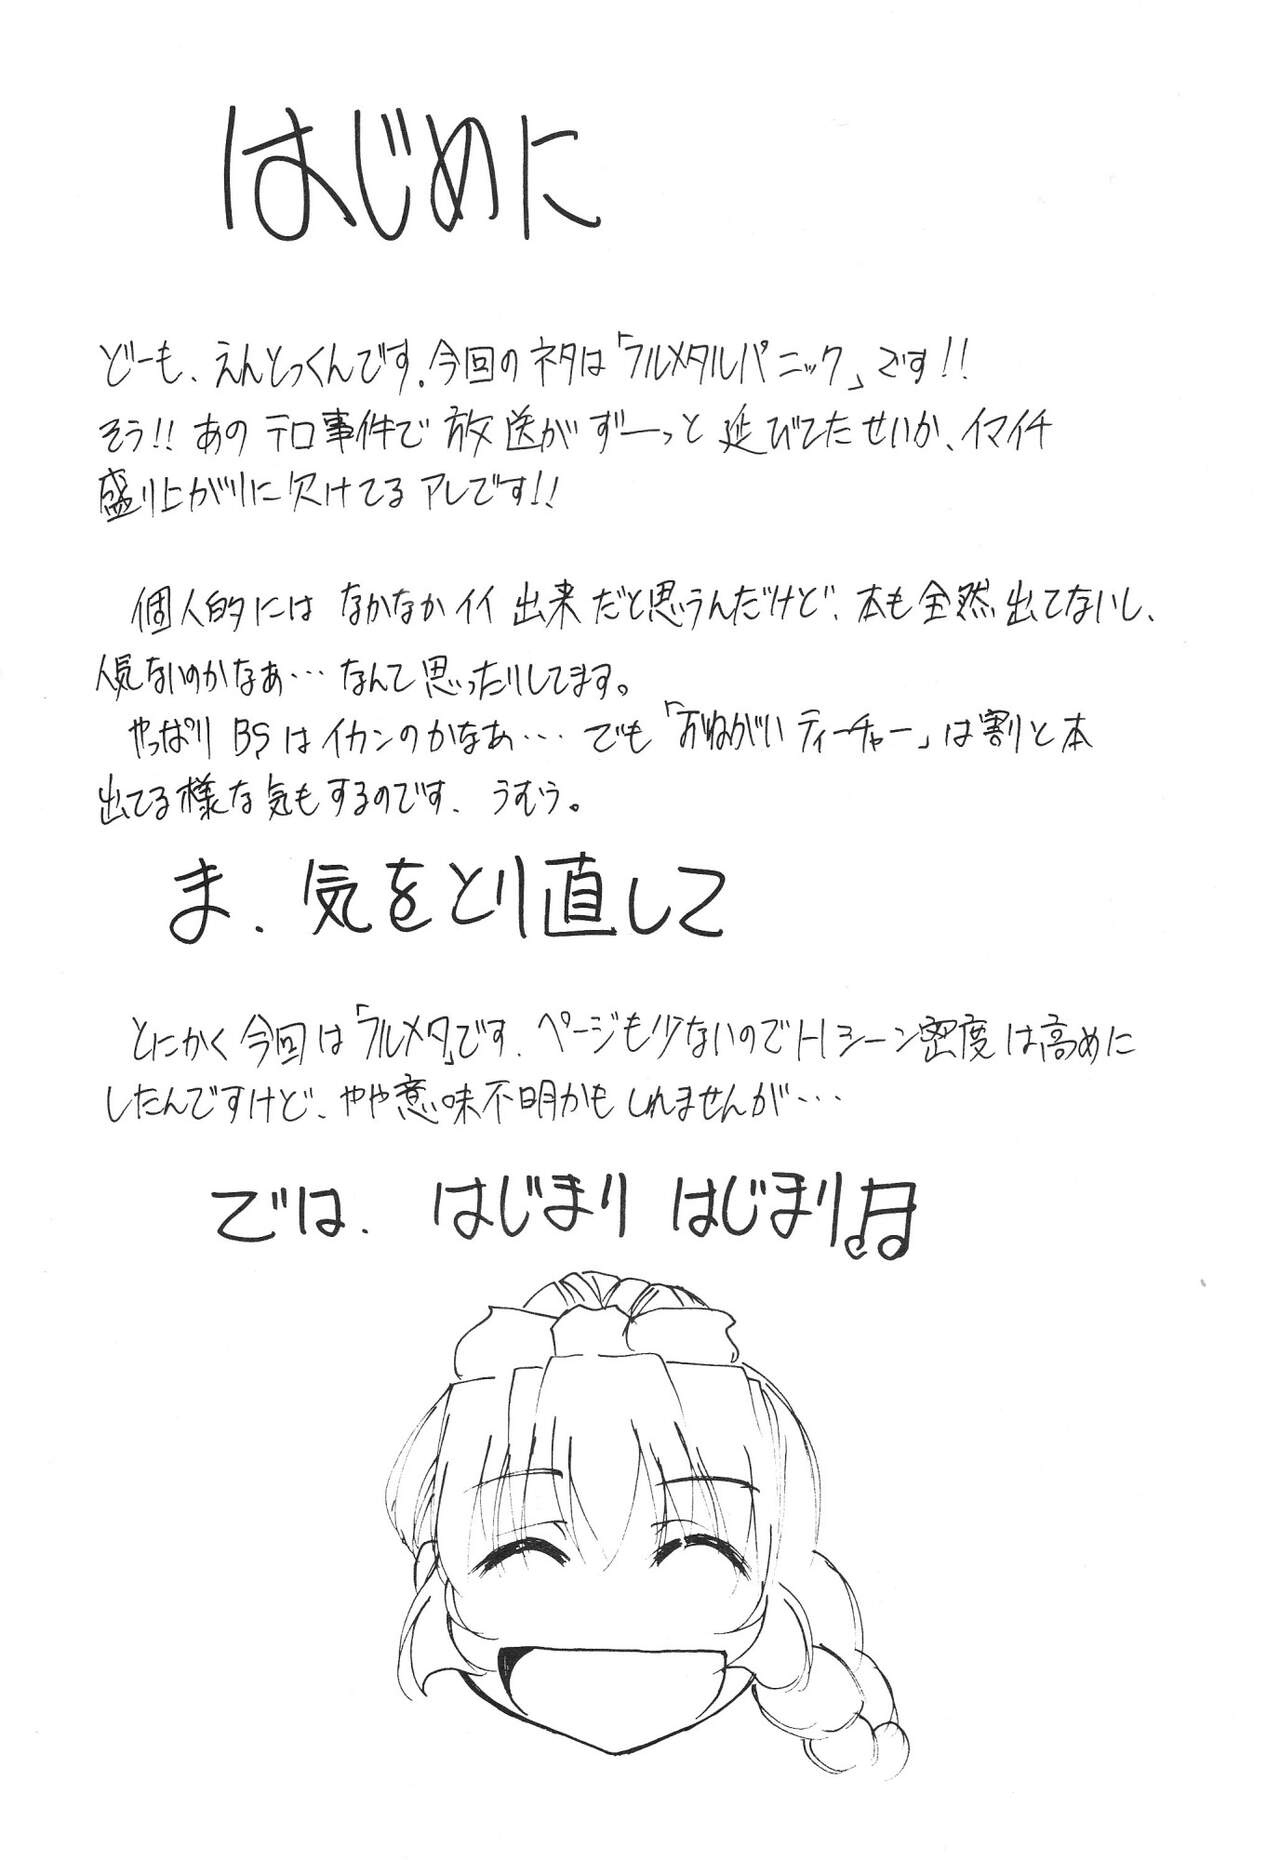 はじめに
どーも、えんとっくんです。今回のネタは「フルメタルパニック」です!!
そう!!あのテロ事件で放送がずーっと延びてたせいか、イマイチ
盛り上がりに欠けてるアレです!!
個人的にはなかなかイイ出来だと思うんだけど、本も全然出てないし、
人気ないのかなぁ…なんて思ったりしてます。
やっぱりBSはイカンのかなあ…でも「おねがいティーチャー」は割と本
出てる様な気もするのです、うむう。
ま、気をとり直して
とにかく今回は「フルメタ」です、ページも少ないのでHシーン密度は高めに
したんですけど、やや意味不明かもしれませんが…
では、はじまりはじまり♫